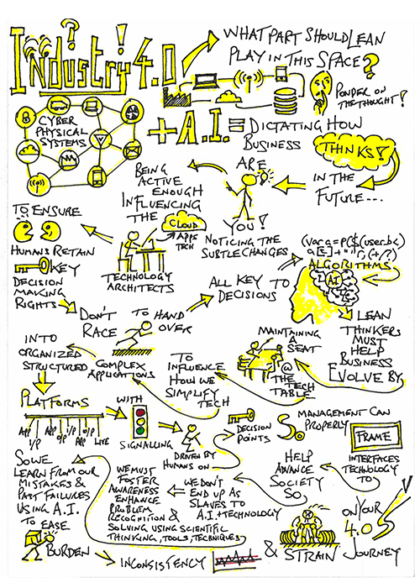 Industry 4.0
WHAT PART SHOULD LEAN
PLAY IN THIS SPACE?
PONDER
ON
THE THOUGHT!
CYBER
PHYSICAL
SYSTEMS
+ A.I. =
DICTATING HOW
BUSINESS
THINKS!
ARE
IN THE
FUTURE...
YOU!
NOTICING THE
SUBTLE CHANGES
BEING
ACTIVE
ENOUGH
INFLUENCING
THE
CLOUD
APPS
TECH
TECHNOLOGY
ARCHITECTS
TO ENSURE
HUMANS RETAIN
KEY
DECISION
MAKING
RIGHTS
DON'T
RACE
TO HAND
OVER
ALL KEY TO
DECISIONS
ALGORITHMS
A.I.
LEAN
THINKERS
MUST
HELP
BUSINESS
EVOLVE BY
MAINTAINING
A SEAT
@
THE
TECH
TABLE
TO
INFLUENCE
HOW WE
SIMPLIFY
TECH
COMPLEX
APPLICATIONS
INTO
ORGANIZED
STRUCTURED
PLATFORMS
WITH
SIGNALLING
DRIVEN BY
HUMANS ON
DECISION
POINTS
SO
MANAGEMENT CAN
PROPERLY
FRAME
INTERFACES
TECHNOLOGY
TO
HELP
ADVANCE
SOCIETY
SO
WE DON'T
END UP AS
SLAVES TO
A.I. + TECHNOLOGY
WE MUST
FOSTER
AWARENESS
ENHANCE
PROBLEM
RECOGNITION &
SOLVING USING SCIENTIFIC
THINKING, TOOLS, TECHNIQUES
SO WE
LEARN FROM OUR
MISTAKES &
PAST FAILURES
USING A.I.
TO EASE
BURDEN
INCONSISTENCY
& STRAIN
ON YOUR
4.0
JOURNEY